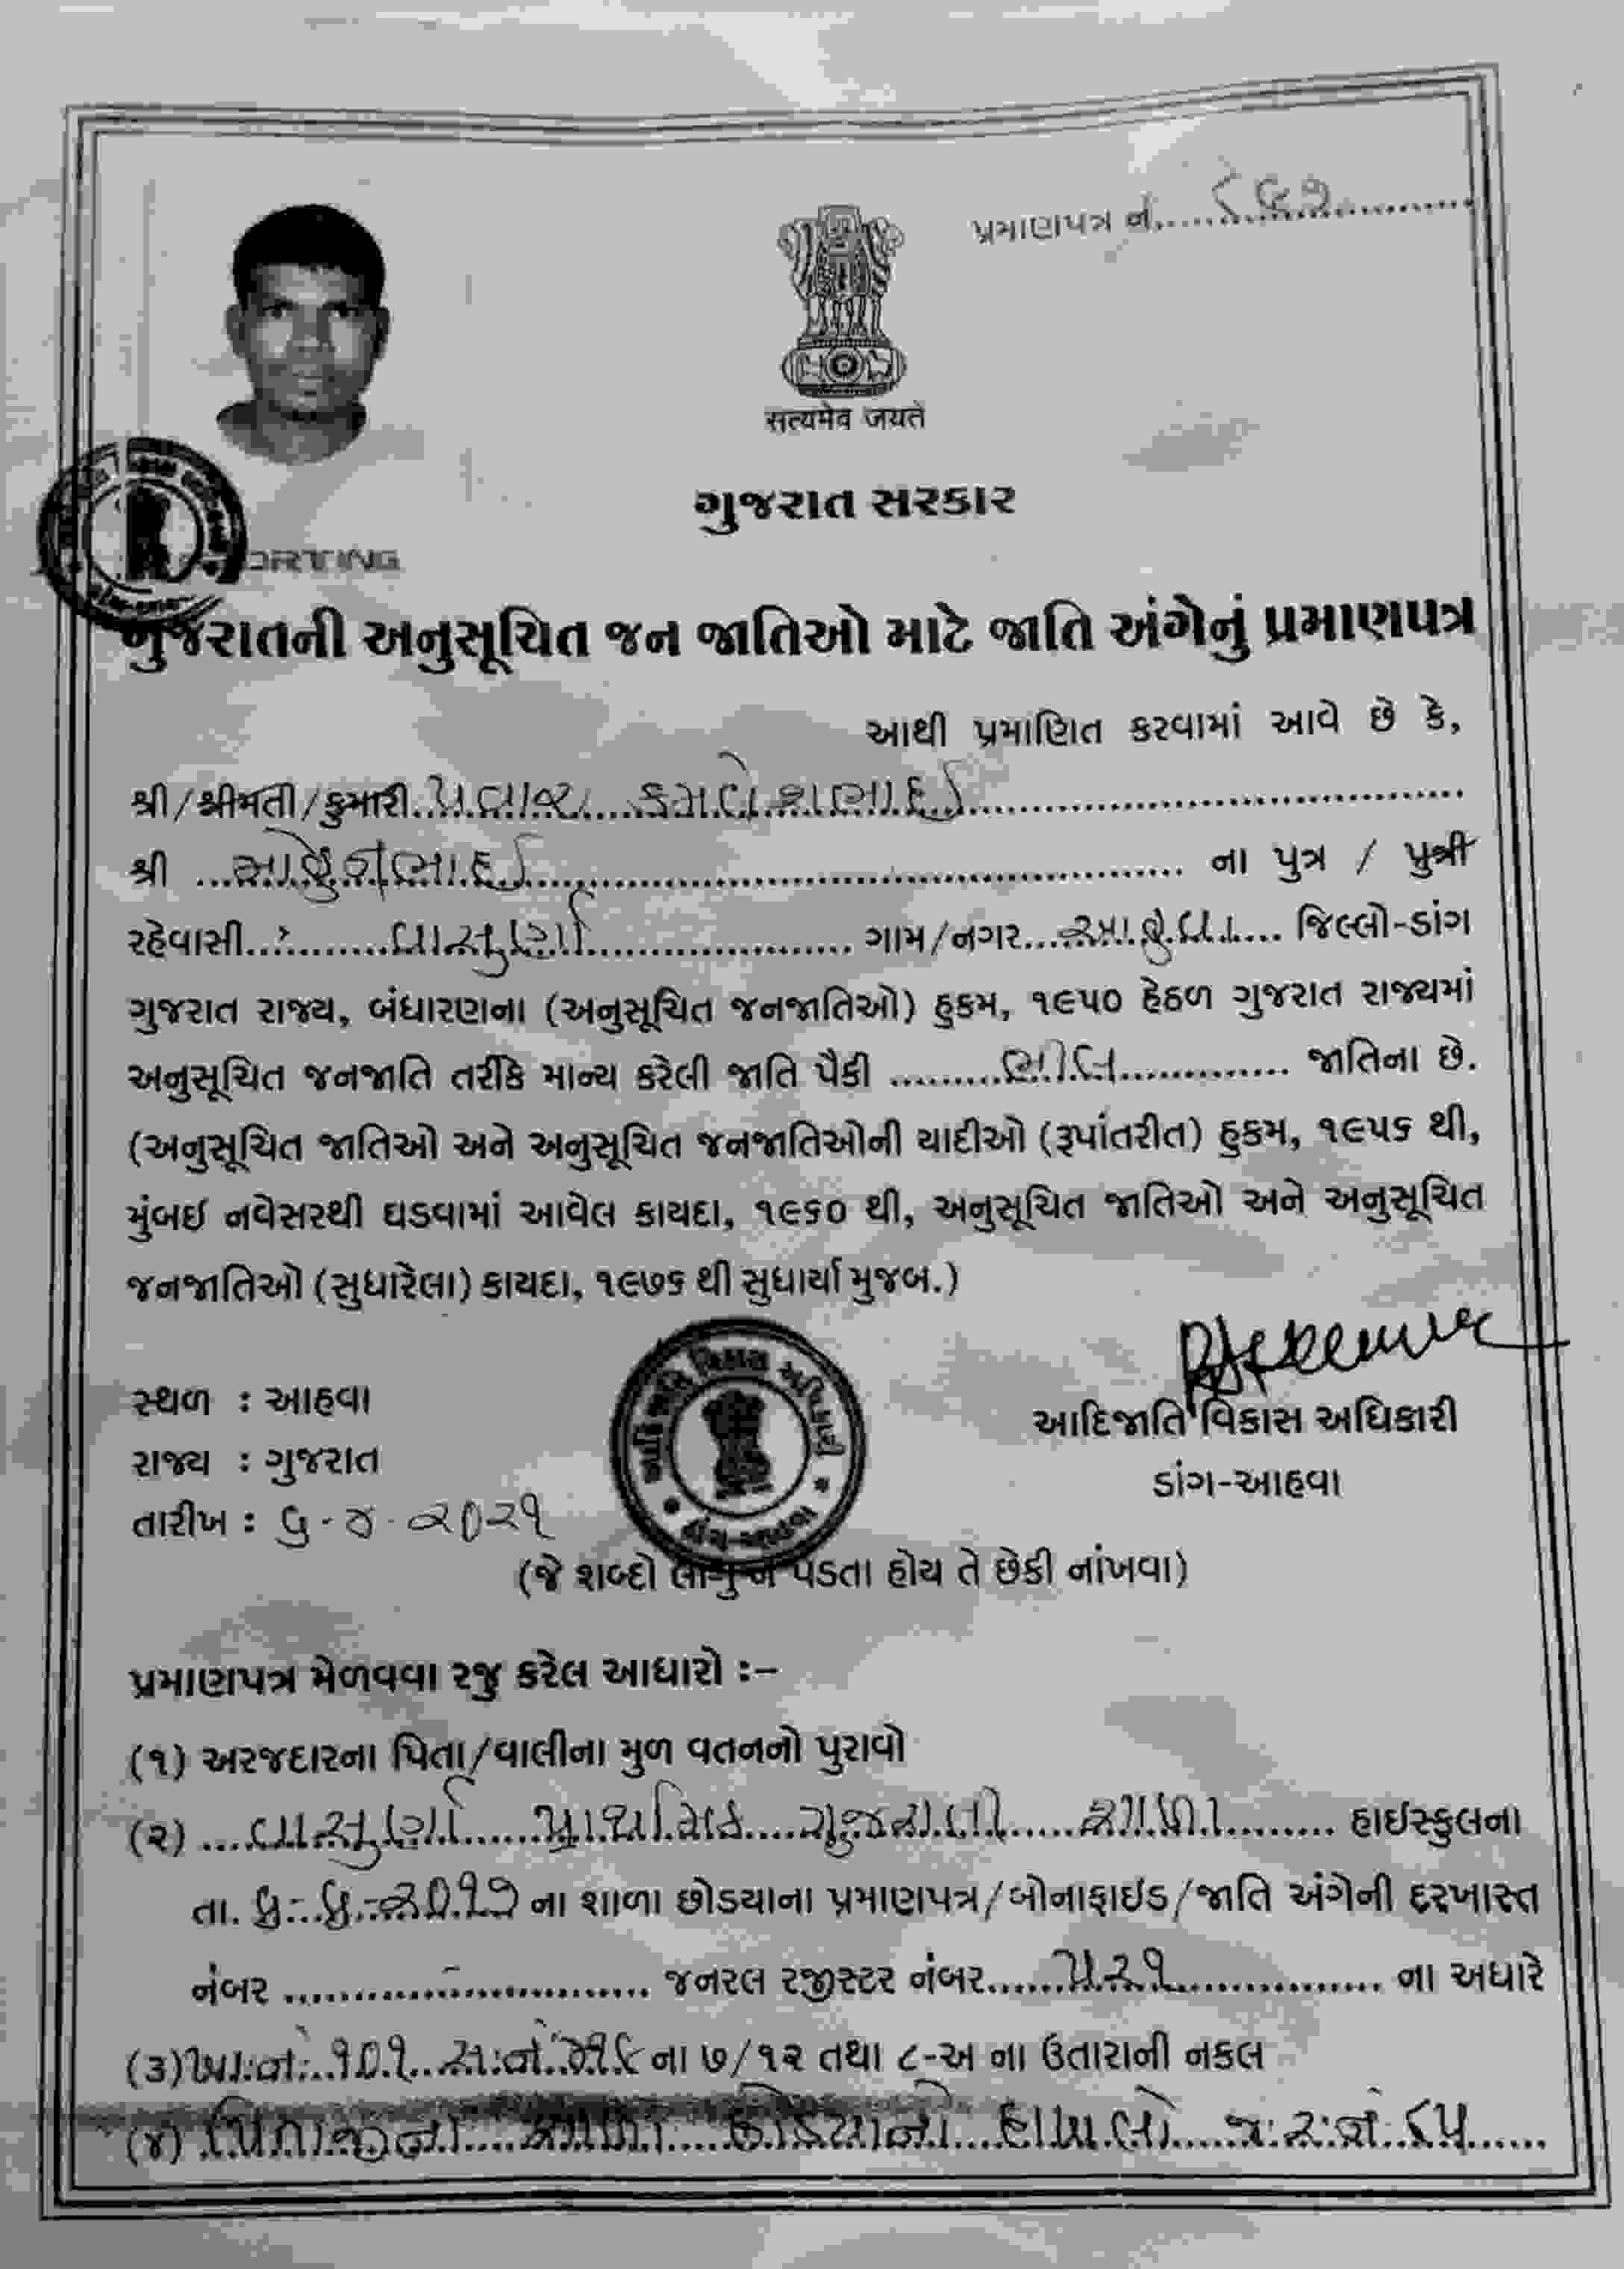 પ્રમાણપત્ર નં.
सत्यमेव जयते
ગુજરાત સરકાર
ORTING
ગુજરાતની અનુસૂચિત જન જાતિઓ માટે જાતિ અંગેનું પ્રમાણપત્ર
આથી પ્રમાણિત કરવામાં આવે છે કે,
શ્રી/શ્રીમતી/કુમારી પવાર કમલેશભાઈ
શ્રી ના પુત્ર / પુત્રી
રહેવાસી વાસુર્ણા ગામ/નગર આહવા જિલ્લો-ડાંગ
ગુજરાત રાજ્ય, બંધારણના (અનુસૂચિત જનજાતિઓ) હુકમ, ૧૯૫૦ હેઠળ ગુજરાત રાજ્યમાં
અનુસૂચિત જનજાતિ તરીકે માન્ય કરેલી જાતિ પૈકી ભીલ જાતિના છે.
(અનુસૂચિત જાતિઓ અને અનુસૂચિત જનજાતિઓની યાદીઓ (રૂપાંતરીત) હુકમ, ૧૯૫૬ થી,
મુંબઈ નવેસરથી ઘડવામાં આવેલ કાયદા, ૧૯૬૦ થી, અનુસૂચિત જાતિઓ અને અનુસૂચિત
જનજાતિઓ (સુધારેલા) કાયદા, ૧૯૭૬ થી સુધાર્યા મુજબ.)
સ્થળ : આહવા
રાજ્ય : ગુજરાત
તારીખ : ૨૦૨૧
આદિ જાતિ વિકાસ અધિકારી
ડાંગ-આહવા
આદિજાતિ વિકાસ અધિકારી
ડાંગ-આહવા
(જે શબ્દો લાગુ ન પડતા હોય તે છેકી નાંખવા)
પ્રમાણપત્ર મેળવવા રજુ કરેલ આધારો :-
(૧) અરજદારના પિતા/વાલીના મુળ વતનનો પુરાવો
(૨) વાસુર્ણા પ્રાથમિક ગુજરાતી શાળા હાઈસ્કુલના
તા. ના શાળા છોડયાના પ્રમાણપત્ર/બોનાફાઇડ/જાતિ અંગેની દરખાસ્ત
નંબર - જનરલ રજીસ્ટર નંબર ૫૨૧ ના અધારે
(૩) ખા.નં. ૧૦૧ સ.નં. ના ૭/૧૨ તથા ૮-અ ના ઉતારાની નકલ
(૪) પિતાજીના શાળા છોડયાનો દાખલો જ.ર.નં. ૬૫